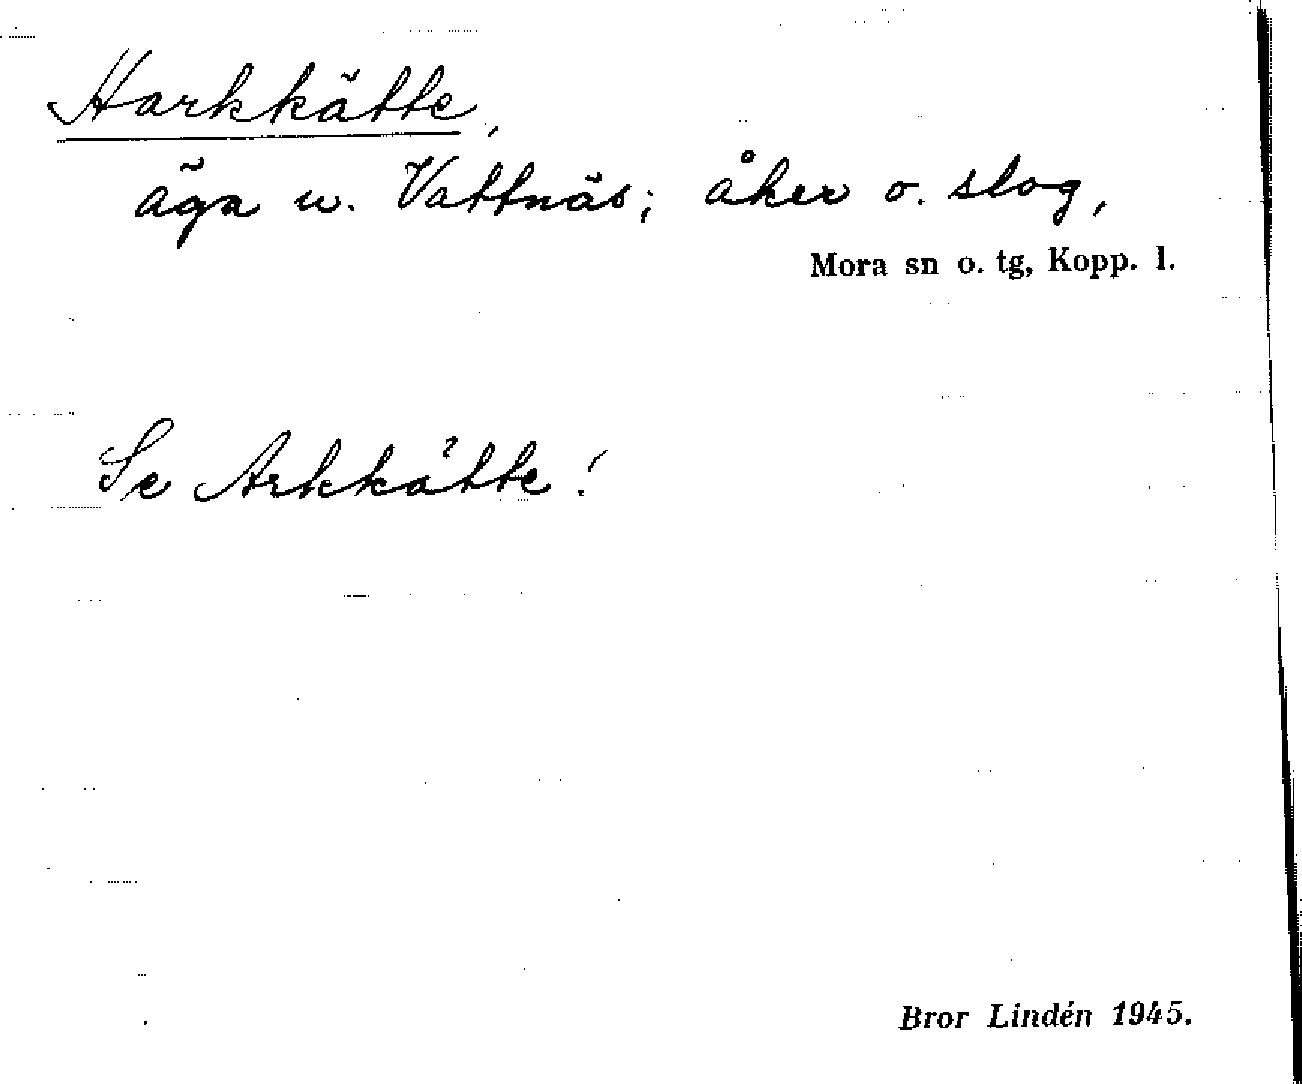 Harkkätte,
äga u. Vattnäs; åker o. slog,
Mora sn o. tg, Kopp. l.
Se Arkkätte!
Bror Lindén 1945.